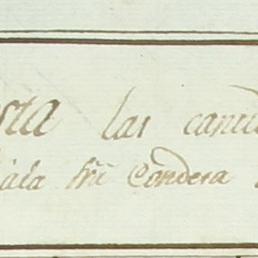 sta las canti
ála Srã Condesa